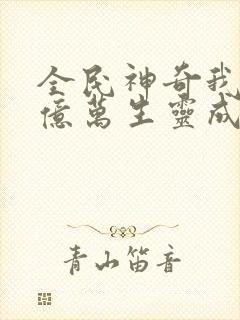 全民神奇我
億萬生靈成
青山笛音